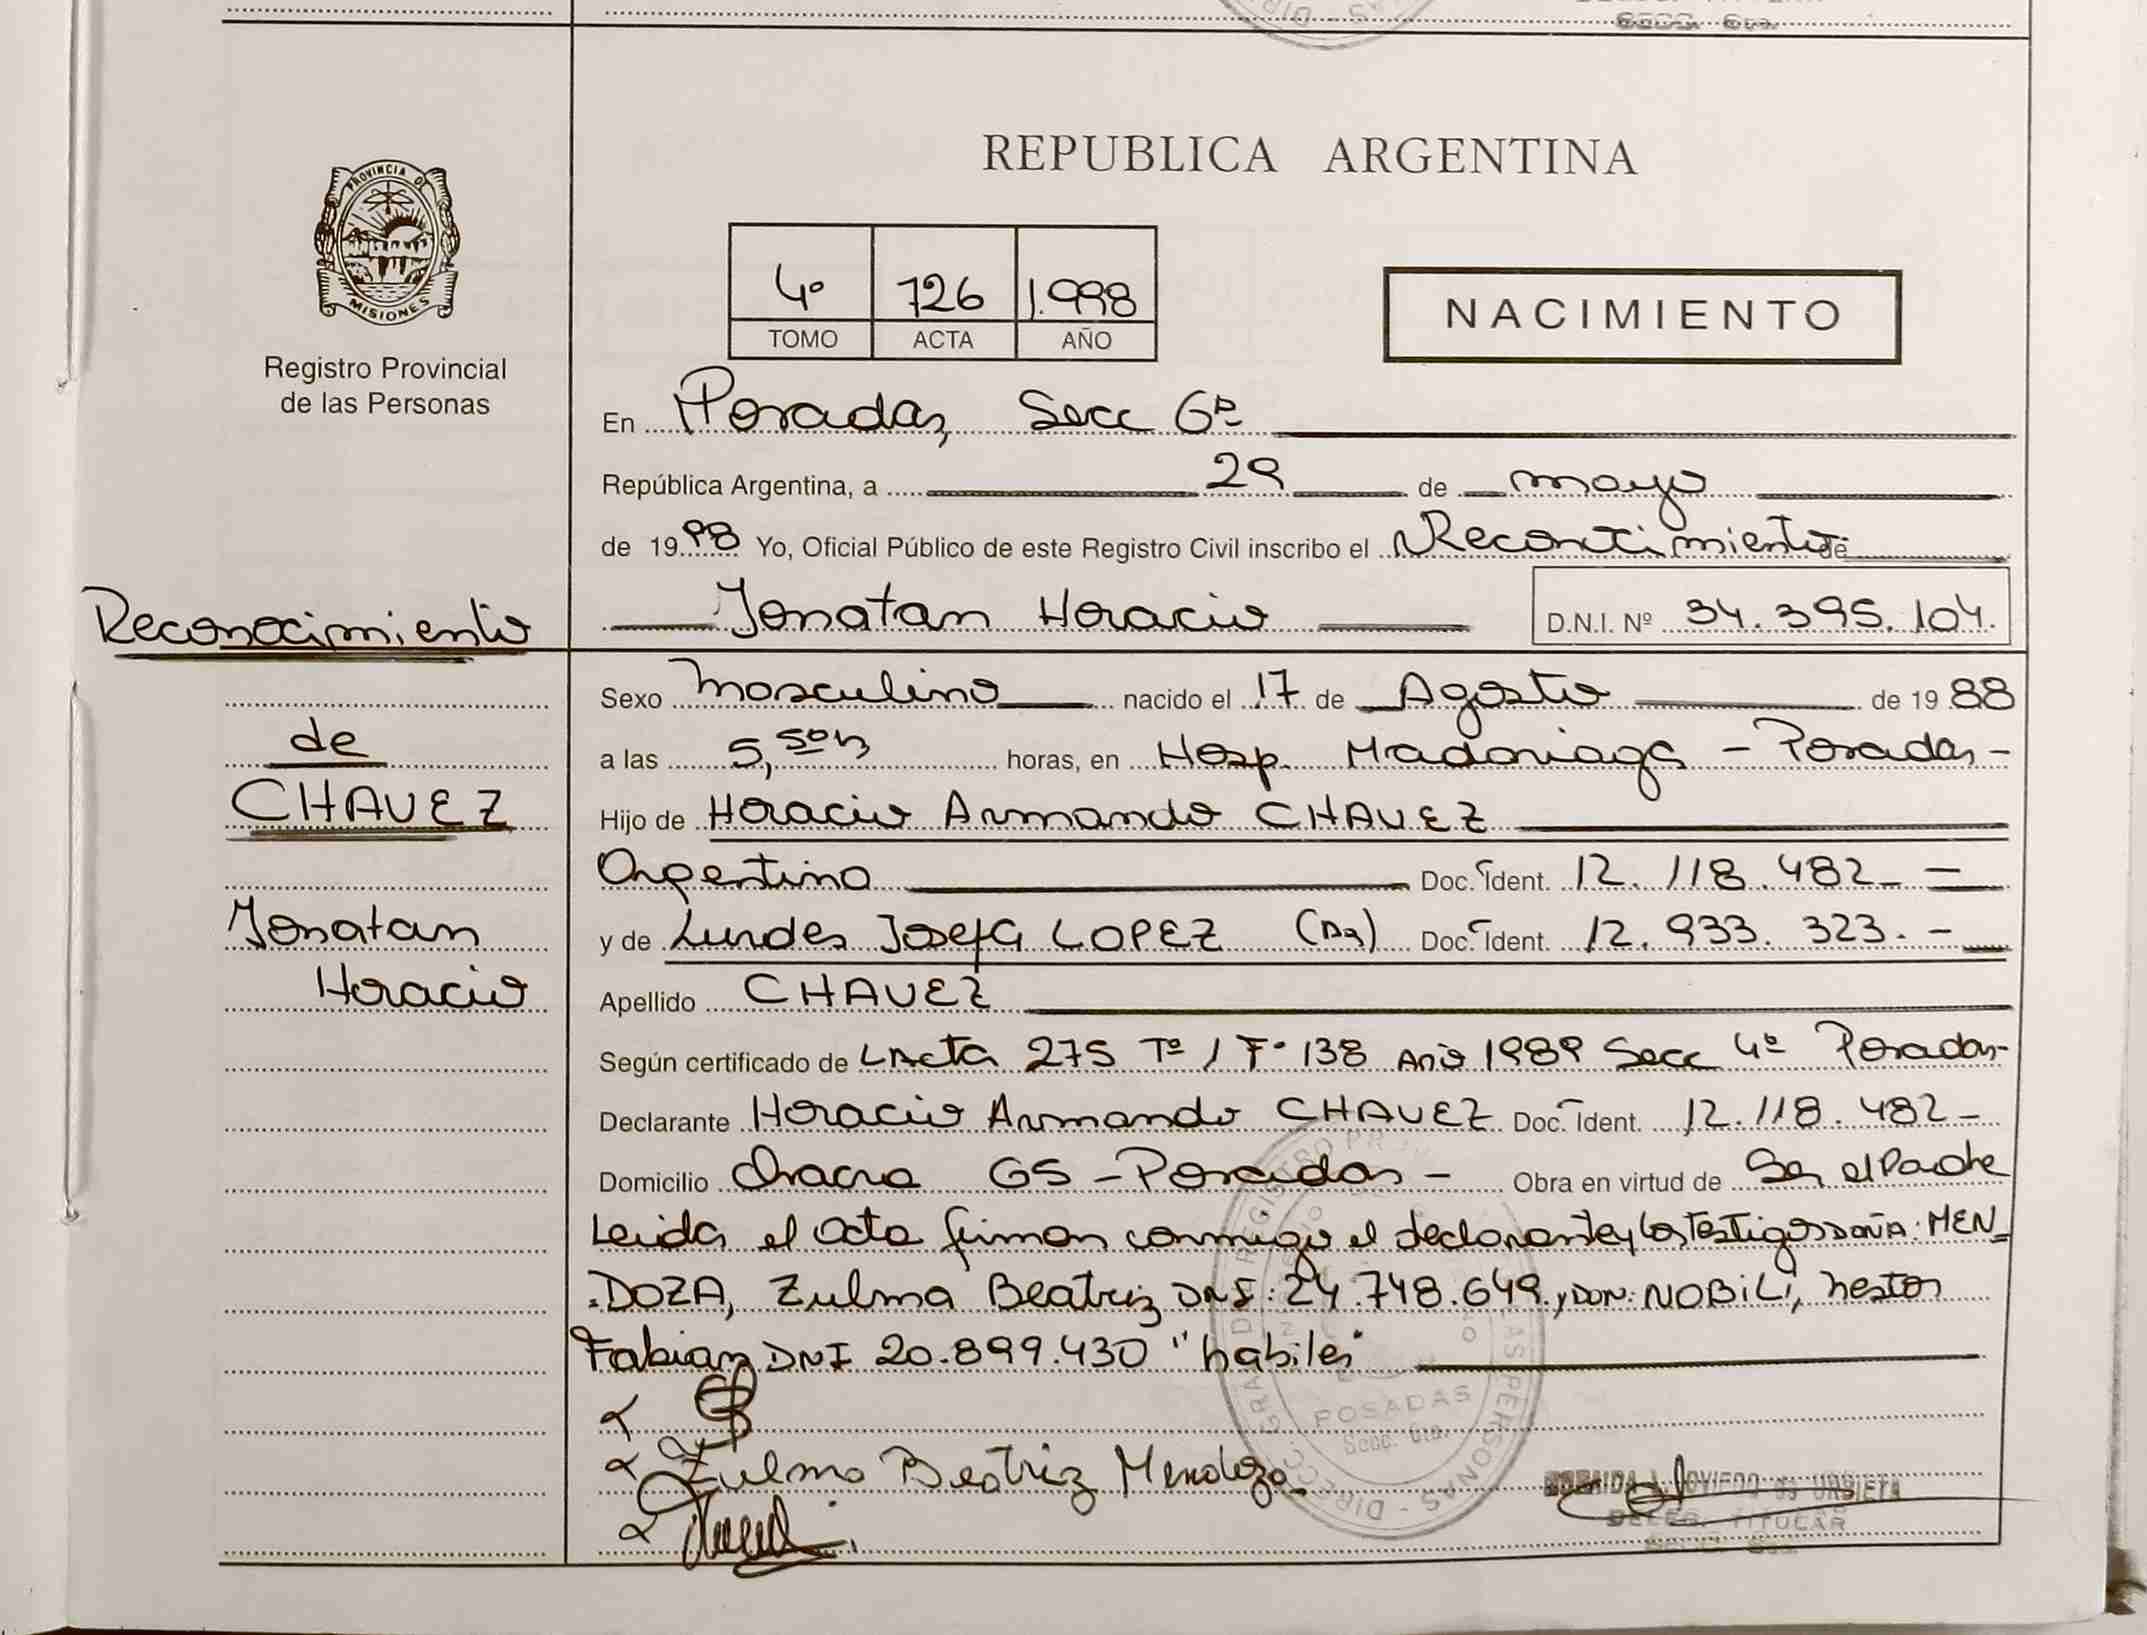 REPUBLICA ARGENTINA
PROVINCIA DE
MISIONES
Registro Provincial
de las Personas
4º 726 1.998
TOMO ACTA AÑO
NACIMIENTO
En Posadas, Secc 6ª
República Argentina, a 29 de mayo
de 1998 Yo, Oficial Público de este Registro Civil inscribo el Reconocimiento de
Jonatan Horacio D.N.I. Nº 34.395.104.
Reconocimiento
de
CHAVEZ
Jonatan
Horacio
Sexo Masculino nacido el 17 de Agosto de 1988
a las 5,50 h horas, en Hosp. Madariaga - Posadas -
Hijo de Horacio Armando CHAVEZ
Argentino Doc. Ident. 12.118.482 -
y de Lurdes Josefa LOPEZ Doc. Ident. 12.933.323. -
Apellido CHAVEZ
Según certificado de Acta 275 Tº 1 Fº 138 Año 1989 Secc 4ª Posadas-
Declarante Horacio Armando CHAVEZ Doc. Ident. 12.118.482 -
Domicilio Chacra 65 - Posadas - Obra en virtud de Ser el Padre
Leida el acta firman conmigo el declarante y los testigos DOÑA: MEN
DOZA, Zulma Beatriz DNI: 24.748.649, y DON: NOBILI, Nestor
Fabian DNI 20.899.430 "habiles"
Zulma Beatriz Mendoza
POSADAS
Secc. 6ta.
OVIEDO de URBIETA
DELEG. TITULAR